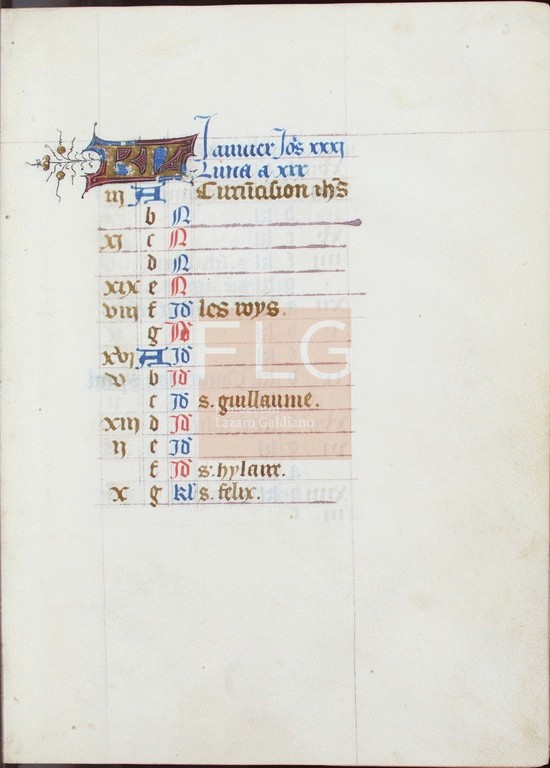 KL Januier Jo͛s xxxi
Luna a xxx
iij A Circũcision ihs
b N
xj c N
d N
xix e N
viij f Id les roys.
g N
xvj A Id
v b Id
c Id s. guillaume.
xiij d Id
ij e Id
f Id s. hylaire.
x g kl s. felix.
FLG
Lázaro Galdiano